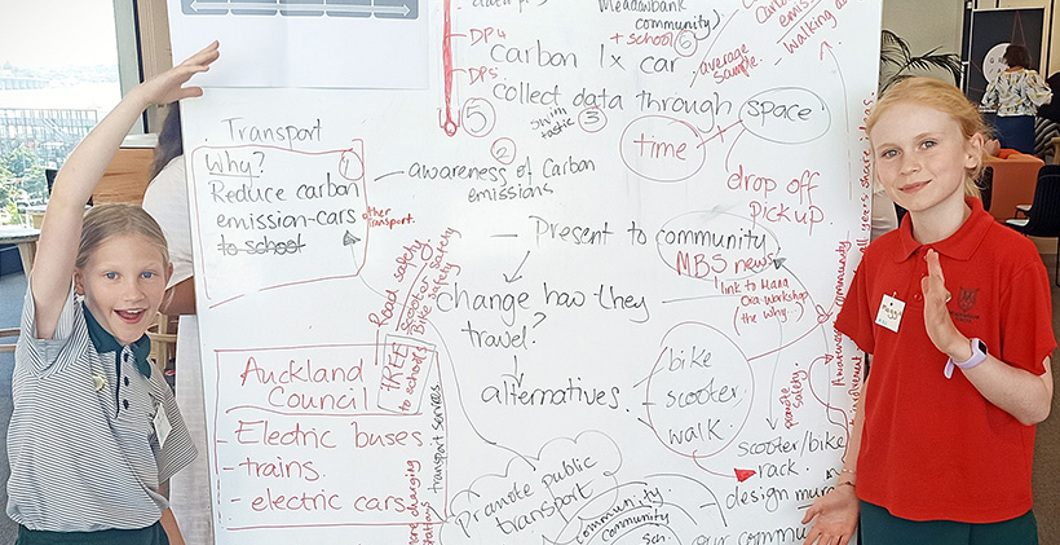 Meadowbank
community)
+ school 6
DP4
carbon 1x car
average
sample.
- walking
DP5
collect data through space
5
swim
tastic 3
time
Transport
Why? 1
Reduce carbon
emission-cars
to school
other
transport.
2
awareness of Carbon
emissions
drop off
pickup
— Present to community
MBS news
link to Hana
(the why...)
Change how they
travel?
Road safety
Scooter safety
Bike safety
FREE
to schools
Auckland
Council
- Electric buses
- trains.
- electric cars
transport services
more charging
stations
alternatives.
bike
- scooter.
walk.
promote
safety.
scooter/bike
rack.
- design
Promote public
transport
community.
community
our
all years share ideas.
community